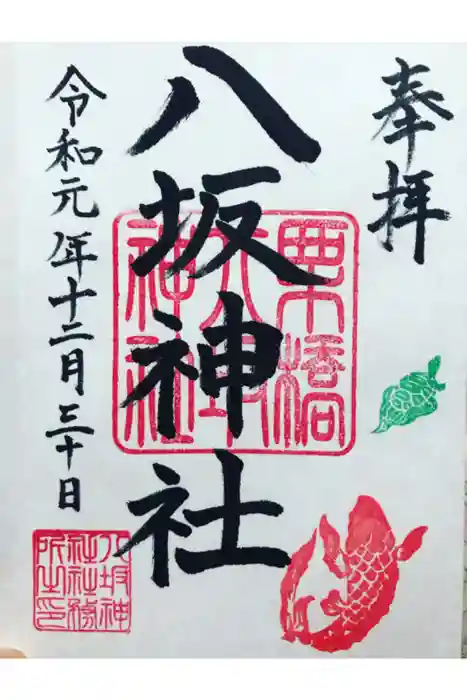 奉拝
八坂神社
令和元年十二月三十日
栗橋
八坂
神社
八坂神
社社務
所之印